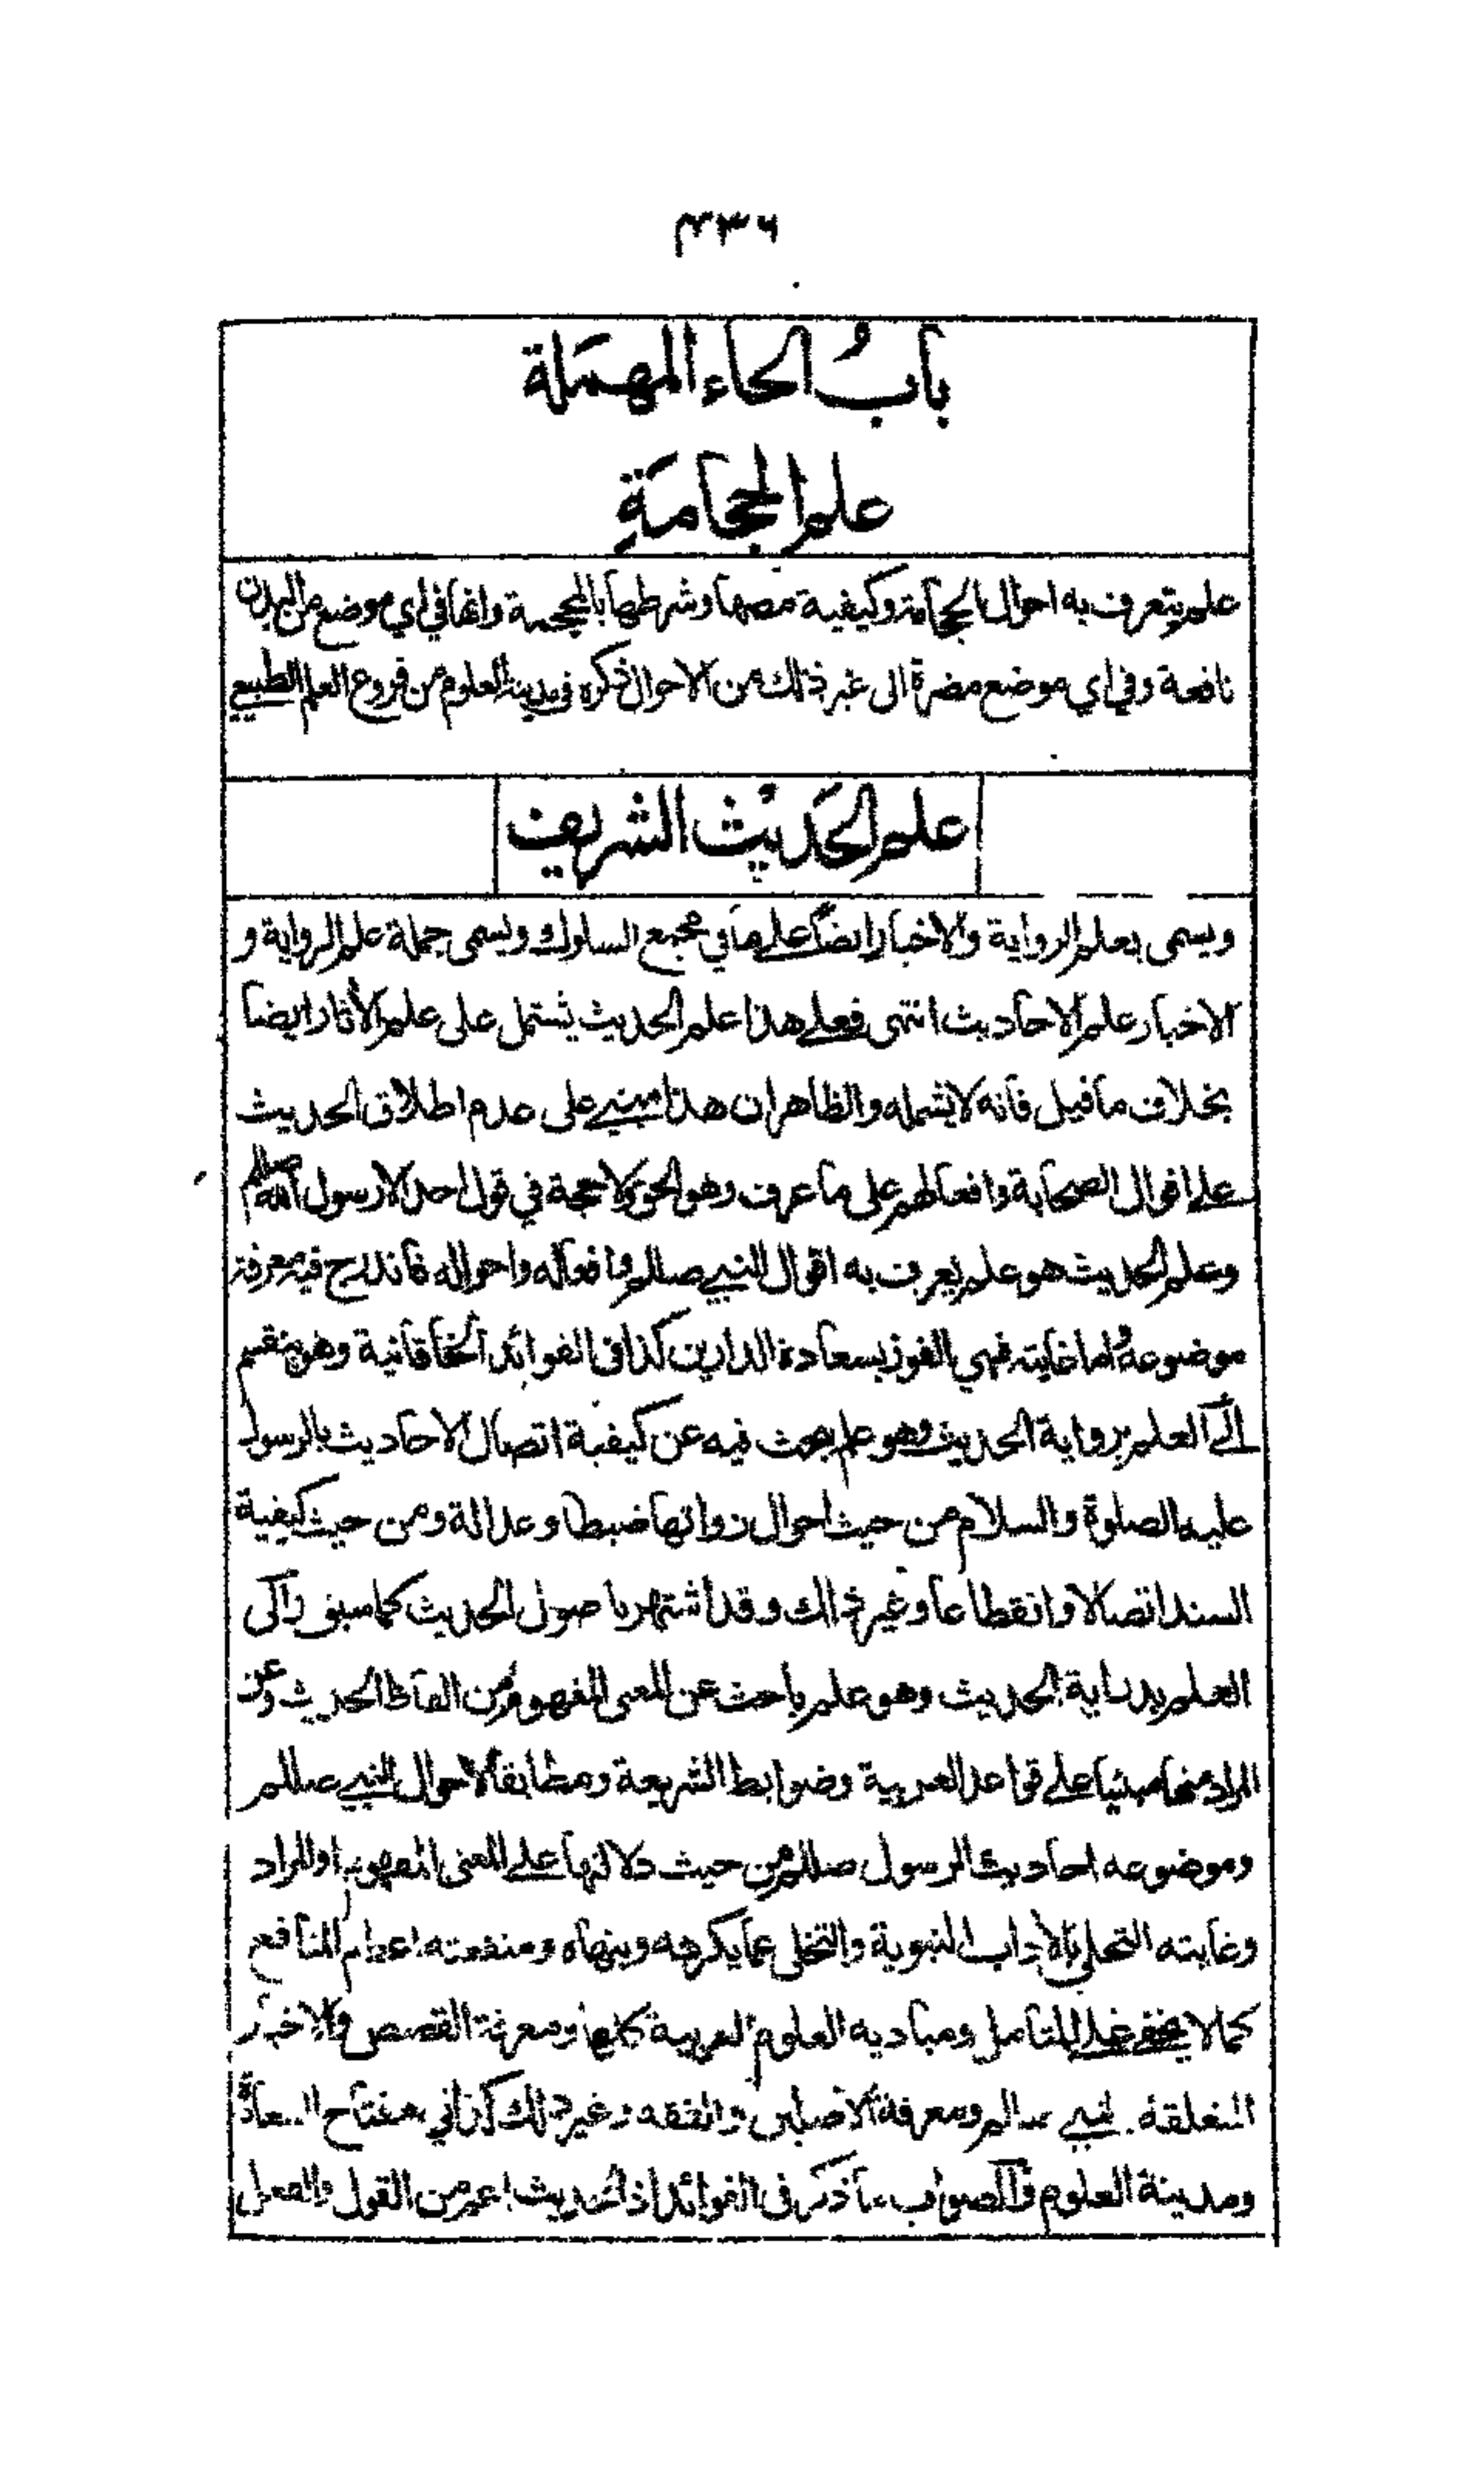 ٤٣٦
بابُ الحاء المهملة
علم الحجامةِ
علم يتعرف به احوال الحجامة وكيفية مصها وشرطها بالمحجمة وانها في اي موضع من البدن
نافعة وفي اي موضع مضرة الى غير ذلك من الاحوال ذكره في مدينة العلوم من فروع العلم الطبيعي
علم الحديث الشريف
ويسمى بعلم الرواية والاخبار ايضا على ما في مجمع السلوك ويسمى جملة علم الرواية و
الاخبار علم الاحاديث انتهى فعلى هذا علم الحديث يشتمل على علم الأثار ايضا
بخلاف ما قيل فانه لا يشمله والظاهر ان هذا مبني على عدم اطلاق الحديث
على اقوال الصحابة وافعالهم على ما عرف وهو الحق ولا حجة في قول احد الا رسول الله صللم
وعلم الحديث هو علم يعرف به اقوال النبي صللم وافعاله واحواله فاندرج فيه معرفة
موضوعه واما غايته فهي الفوز بسعادة الدارين كذا في الفوائد الخاقانية وهو ينقسم
الى العلم برواية الحديث وهو علم يبحث فيه عن كيفية اتصال الاحاديث بالرسول
عليه الصلوة والسلام من حيث احوال رواتها ضبطا وعدالة ومن حيث كيفية
السند اتصالا وانقطاعا وغير ذلك وقد اشتهر باصول الحديث كما سبق والى
العلم بدراية الحديث وهو علم باحث عن المعنى المفهوم من الفاظ الحديث وعن
المراد منها مبنيا على قواعد العربية وضوابط الشريعة ومطابقا لاحوال النبي صللم
وموضوعه احاديث الرسول صللم من حيث دلالتها على المعنى المفهوم او المراد
وغايته التحلي بالاداب النبوية والتخلي عما يكرهه وينهاه ومنفعته اعظم المنافع
كما لا يخفى على المتامل ومباديه العلوم العربية كلها ومعرفة القصص والاخبار
المتعلقة بالنبي صللم ومعرفة الاصلين والفقه وغير ذلك كذا في مفتاح السعادة
ومدينة العلوم والصواب ما ذكر في الفوائد اذ الحديث اعم من القول والفعل